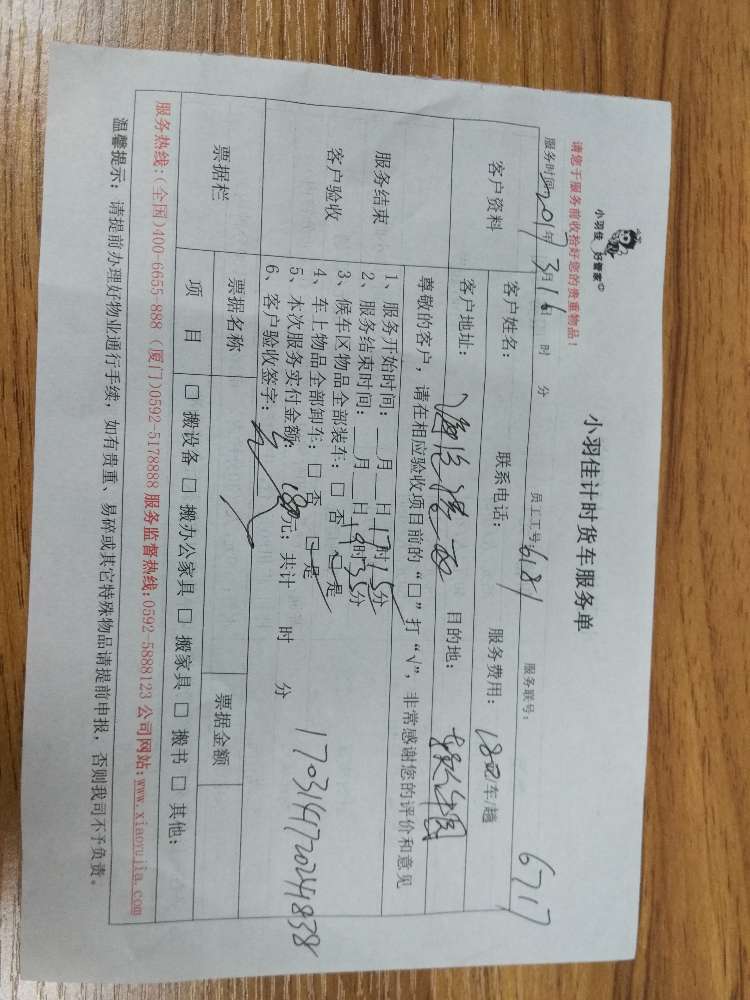 小羽佳 好管家
小羽佳计时货车服务单
请您于服务前收拾好您的贵重物品！
6717
服务时间：2017年3月16日 时 分 员工工号：6181 服务联号：
客户资料
客户姓名： 联系电话： 服务费用：180元/车/趟
客户地址： 目的地：
尊敬的客户，请在相应验收项目前的“□”打“√”，非常感谢您的评价和意见
服务结束
客户验收
1、服务开始时间：__月__日17时15分
2、服务结束时间：__月__日19时35分
3、候车区物品全部装车：□ 否 □ 是
4、车上物品全部卸车：□ 否 □ 是
5、本次服务实付金额：180元；共计 时 分
6、客户验收签字：
17031472024 1838
票据栏
票据名称 票据金额
项 目 □ 搬设备 □ 搬办公家具 □ 搬家具 □ 搬书 □ 其他：
服务热线：(全国)400-6655-888 (厦门)0592-5178888 服务监督热线:0592-5888123 公司网站:www.xiaoyujia.com
温馨提示：请提前办理好物业通行手续，如有贵重、易碎或其它特殊物品请提前申报，否则我司不予负责。